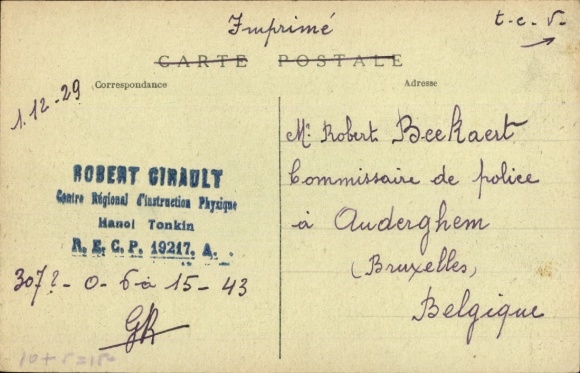 Imprimé
t-c-v-
CARTE POSTALE
Correspondance
Adresse
1.12-29
ROBERT GIRAULT
Centre Régional d'instruction Physique
Hanoi Tonkin
R. E. C. P. 19217. A.
307?-0-6 à 15-43
GR
Mr Robert Beekaert
Commissaire de police
à Auderghem
(Bruxelles)
Belgique